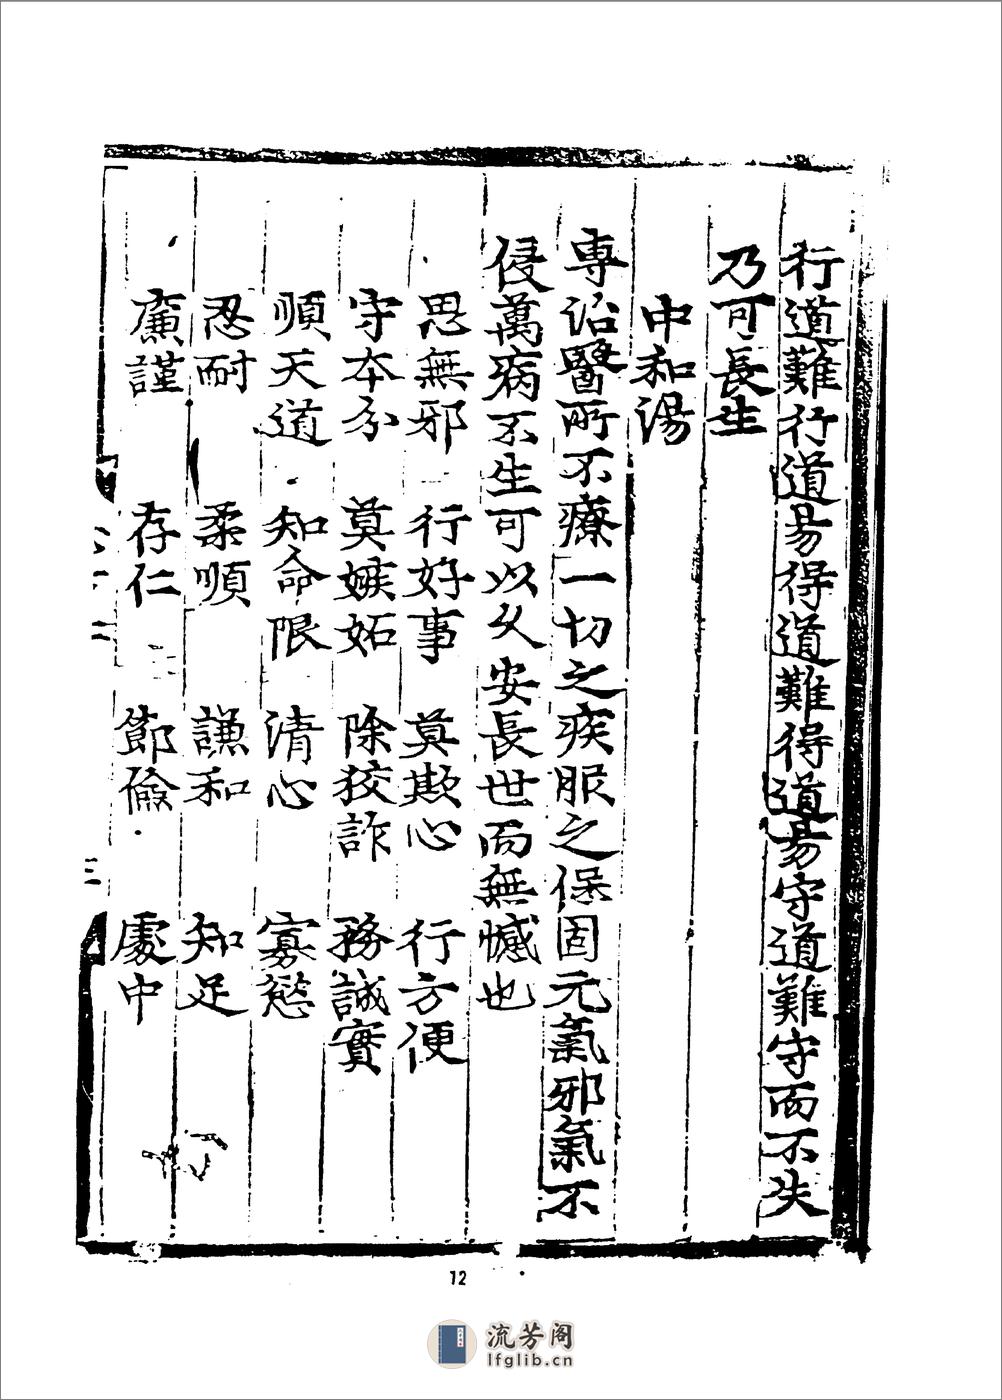 行道難行道易得道難得道易守道難守而不失
乃可長生
中和湯
專治醫所不療一切之疾服之保固元氣邪氣不
侵萬病不生可以久安長世而無憾也
思無邪 行好事 莫欺心 行方便
守本分 莫嫉妬 除狡詐 務誠實
順天道 知命限 清心 寡慾
忍耐 柔順 謙和 知足
廉謹 存仁 節儉 處中
三
12
流芳阁
lfglib.cn